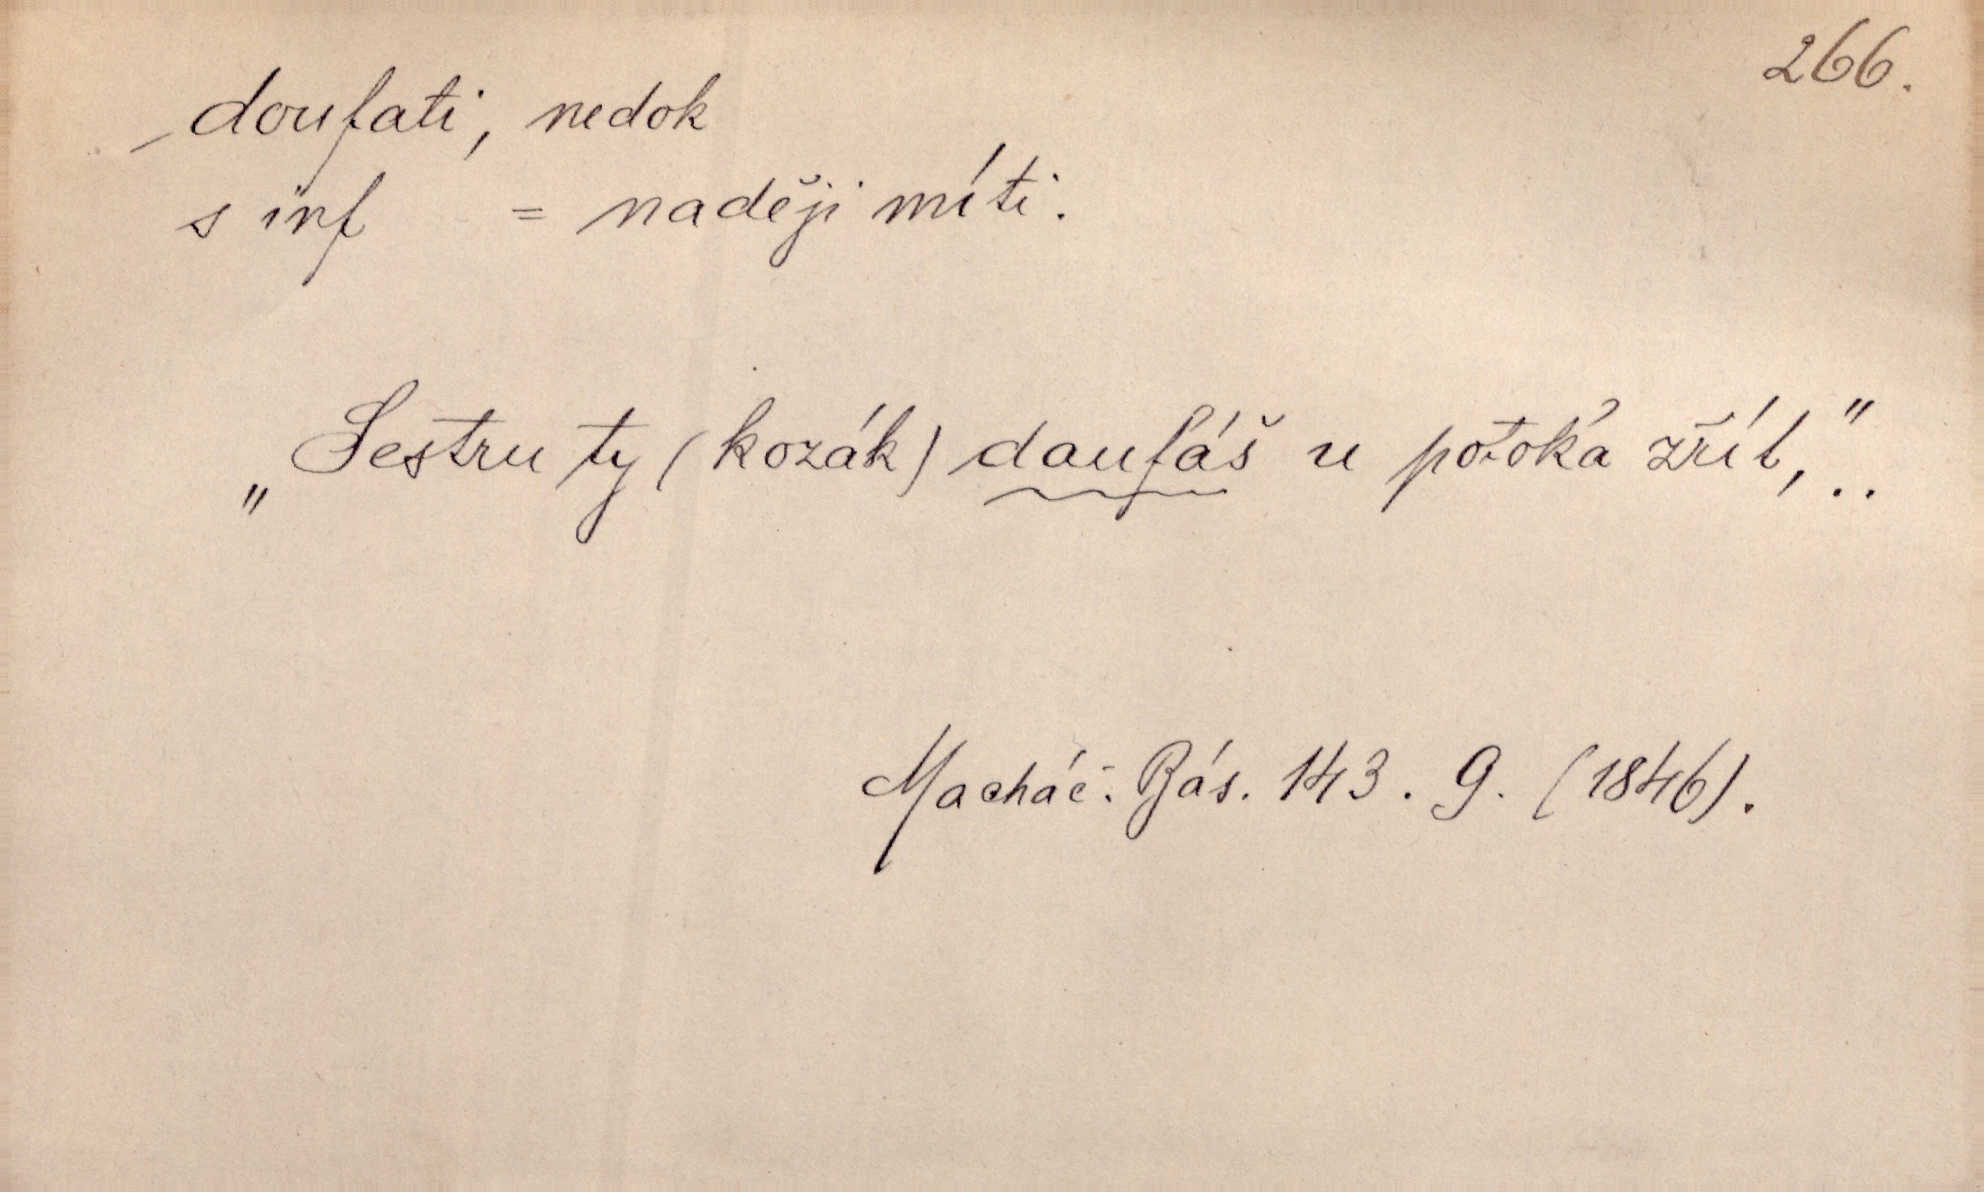 266.
doufati, nedok
s inf = naději míti.
„Sestru ty (kozák) daufáš u potoka zřít,.."
Macháč. Bás. 143. 9. (1846).